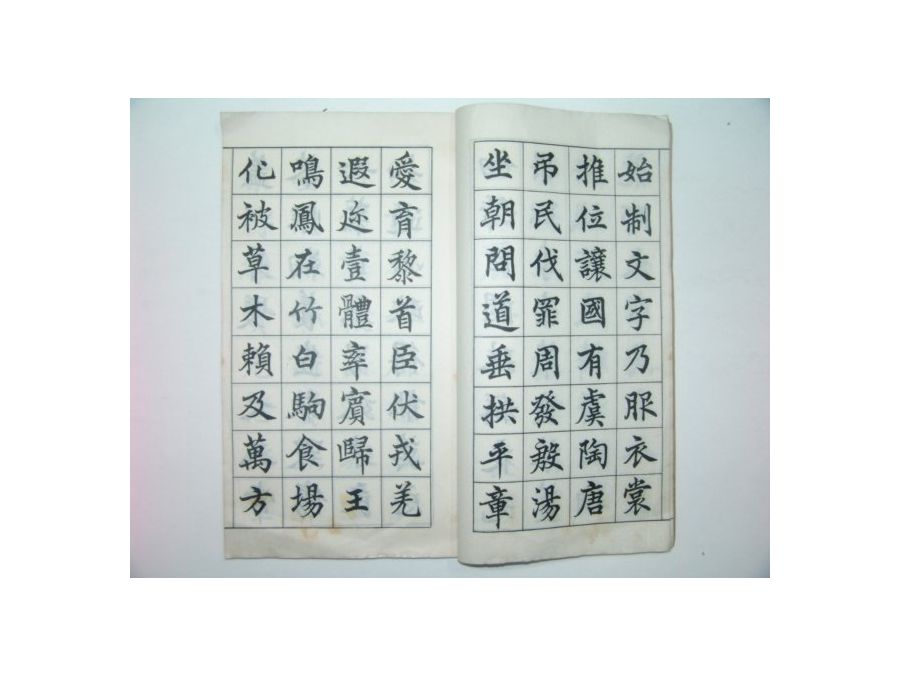 始制文字乃服衣裳
推位讓國有虞陶唐
弔民伐罪周發殷湯
坐朝問道垂拱平章
愛育黎首臣伏戎羌
遐迩壹體率賓歸王
鳴鳳在竹白駒食場
化被草木賴及萬方